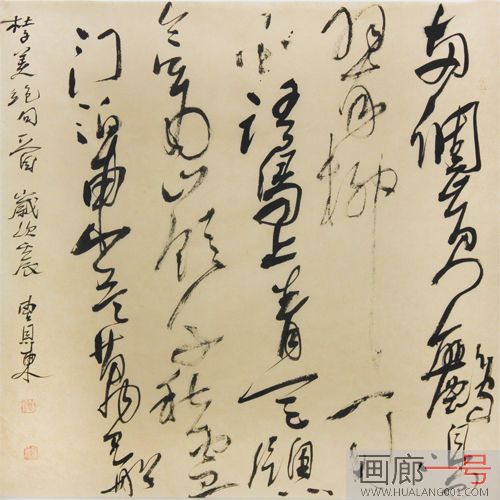 两個黄鸝鳴
翠柳一行
白鷺上青天窗
含西嶺千秋雪
门泊東吴萬里船
杜子美絶句一首 歲次壬辰
画廊一号
WWW.HUALANG001.COM